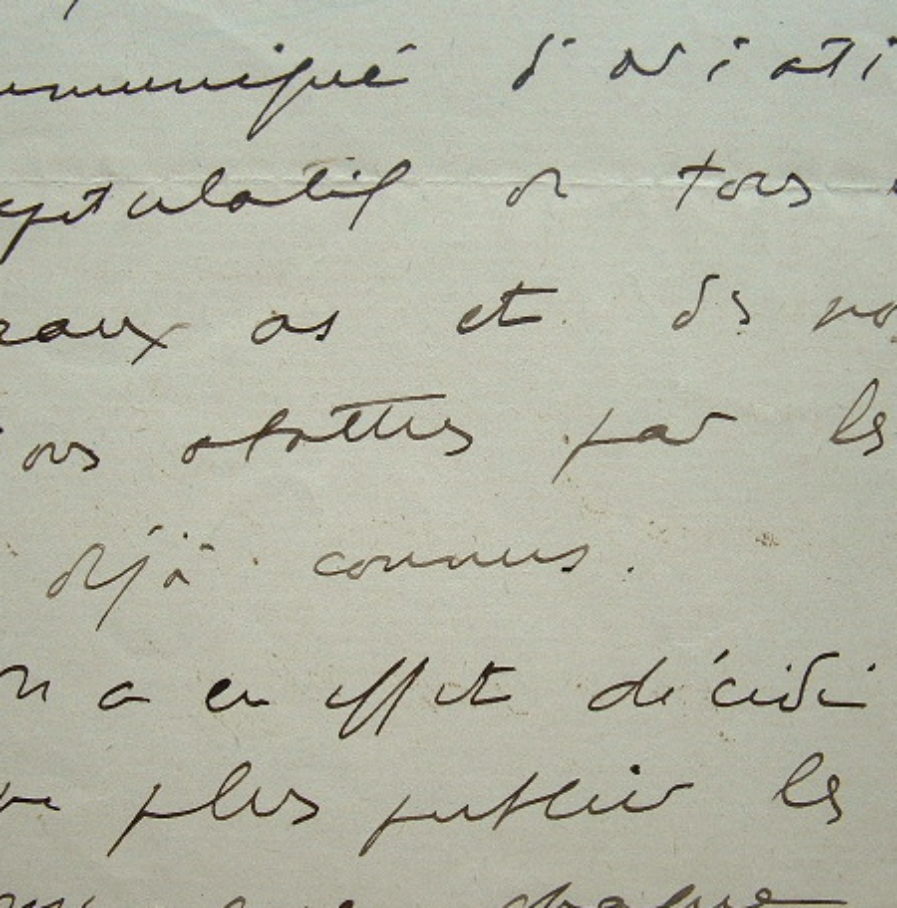 mmuniqué d'aviati
apitulatif de tous
eaux as et des no
ions abattus par les
déjà connus.
On a en effet décidé
ne plus publier les
que chaque